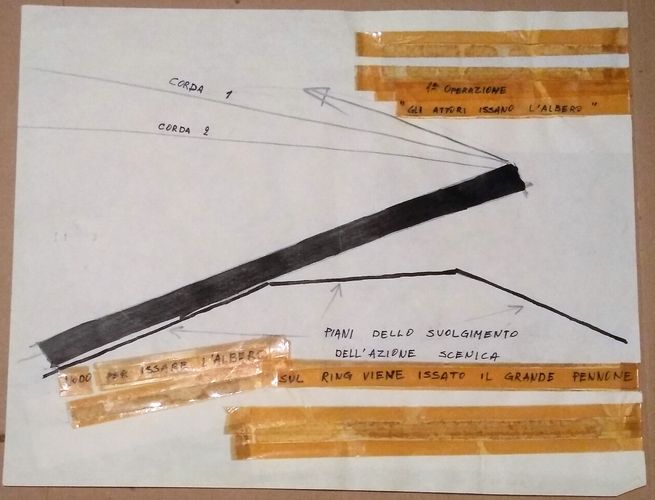 CORDA 1
1ª OPERAZIONE
"GLI ATTORI ISSANO L'ALBERO"
CORDA 2
PIANI DELLO SVOLGIMENTO
DELL'AZIONE SCENICA
MODO PER ISSARE L'ALBERO
SUL RING VIENE ISSATO IL GRANDE PENNONE